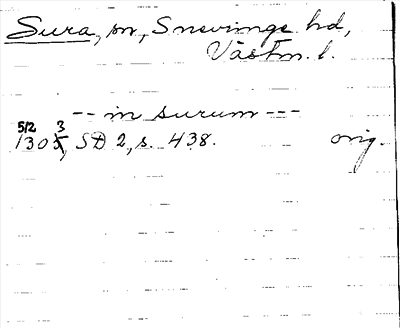 Sura, sn, Snevringe hd,
Västm. l.
-- in surum ---
5/2 3
1305, SD 2, s. 438. orig.